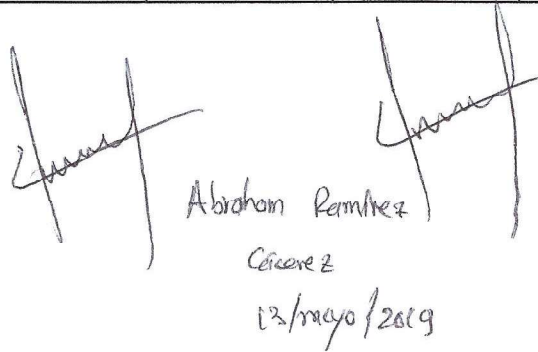 Abraham Ramírez
Cácerez
13/mayo/2019